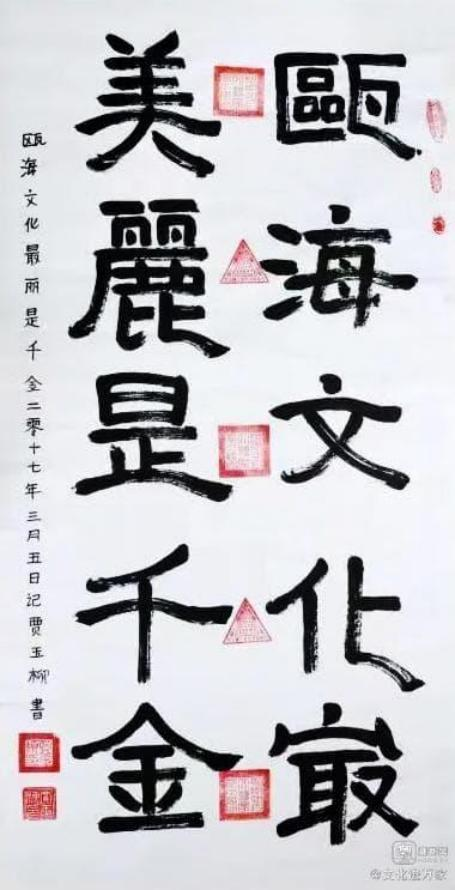 甌海文化㝡
美麗是千金
甌海文化最丽是千金二零十七年三月五日记贾玉柳書
@文化进万家